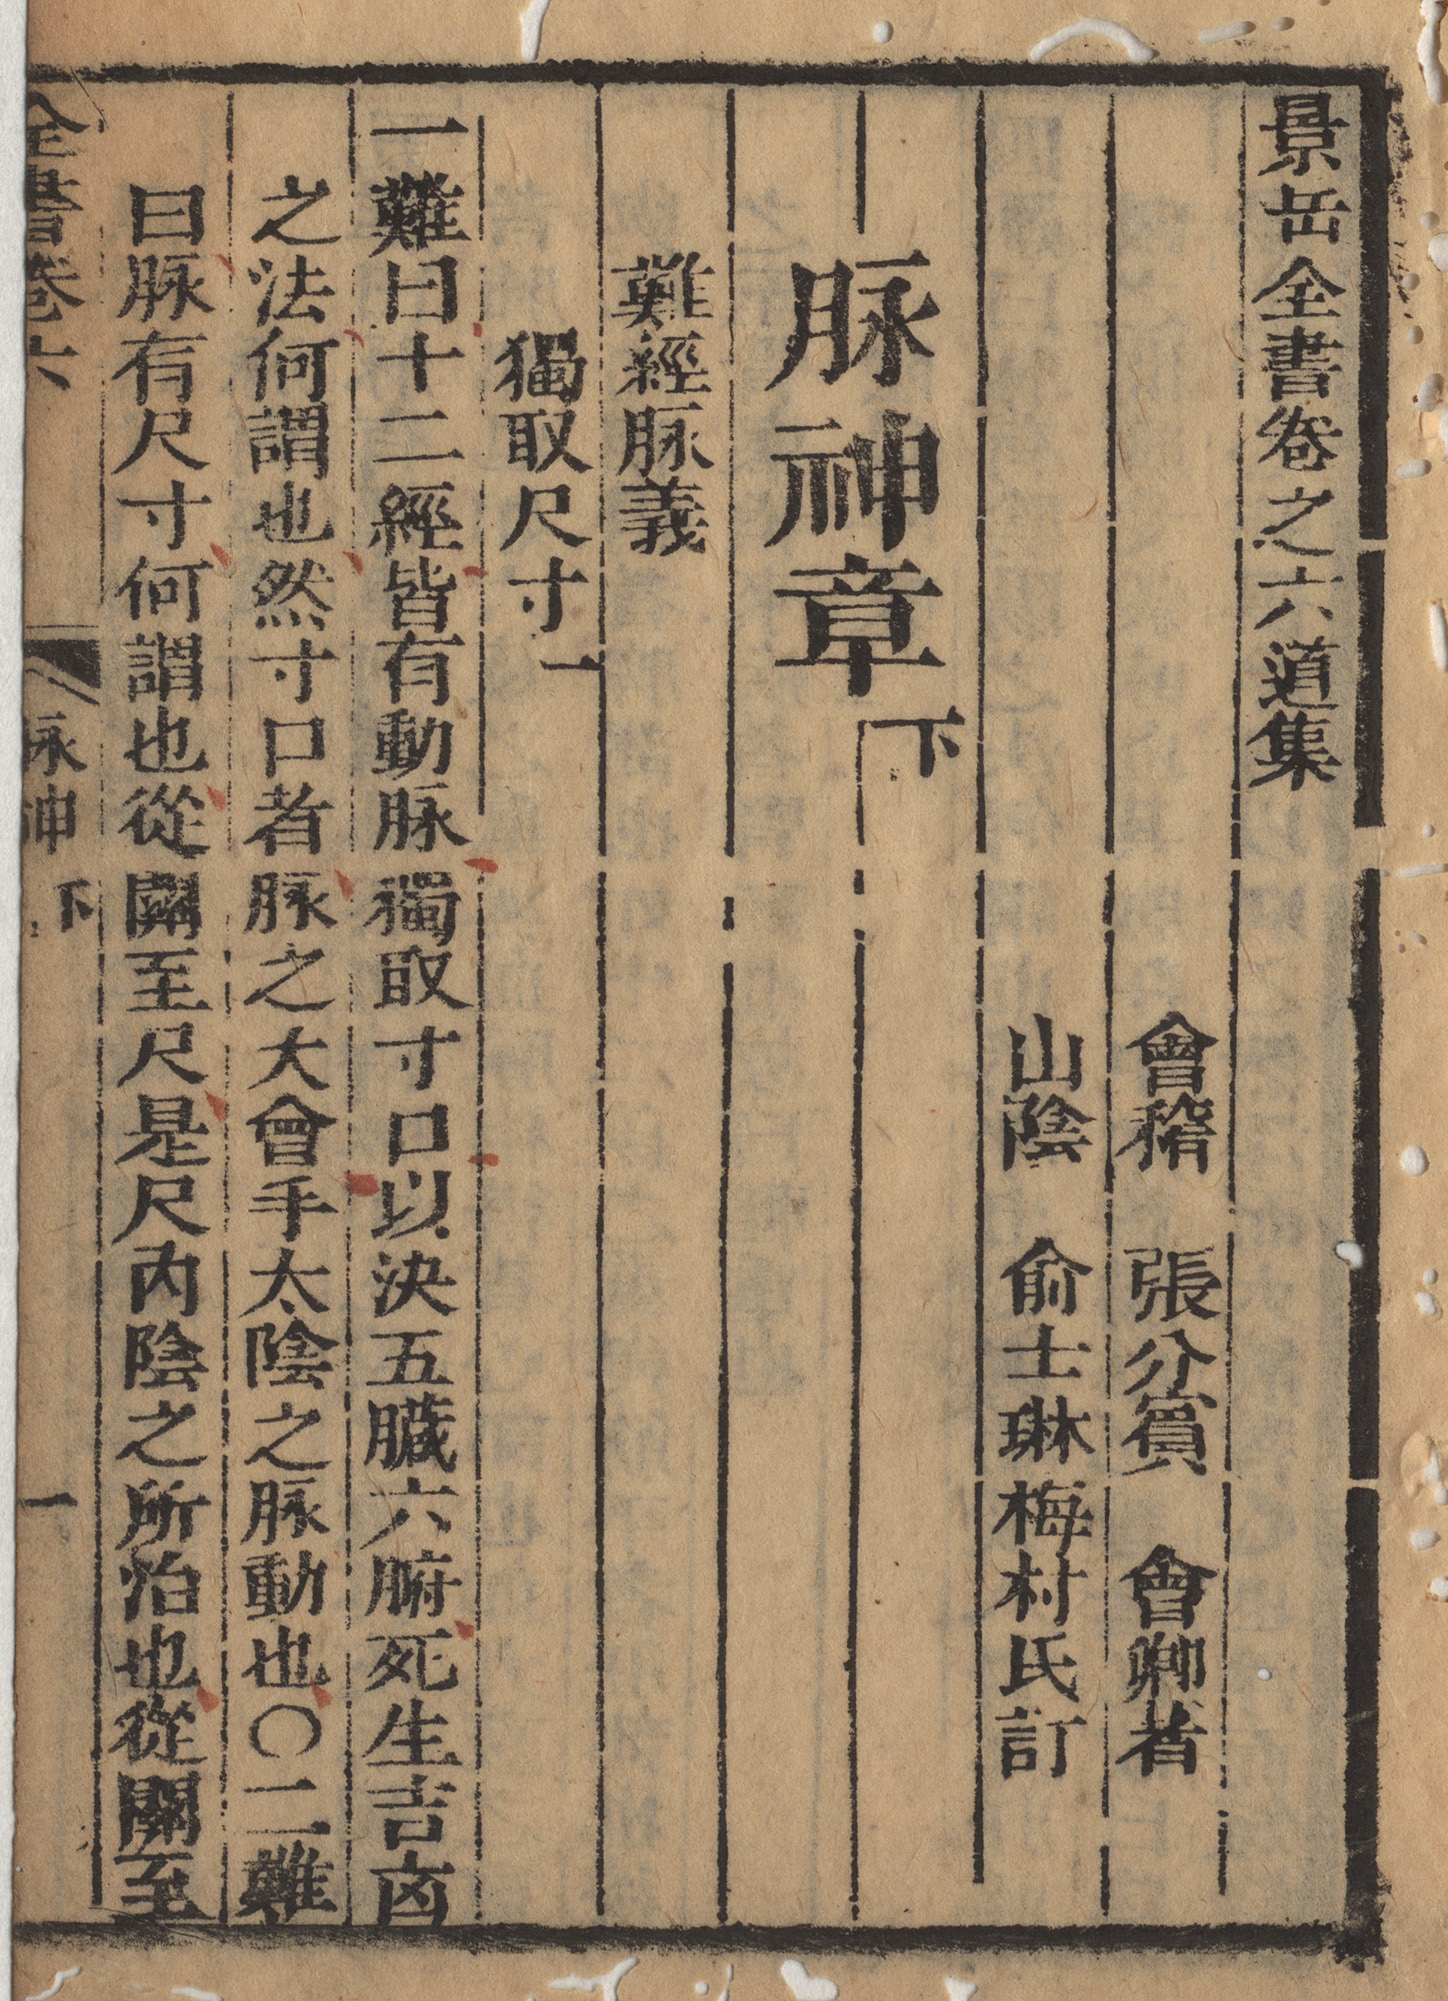 景岳全書卷之六道集
會稽 張介賓 會卿著
山陰 俞士琳梅村氏訂
脉神章下
難經脉義
獨取尺寸一
一難曰十二經皆有動脉獨取寸口以決五臟六腑死生吉凶
之法何謂也然寸口者脉之大會手太陰之脉動也〇二難
曰脉有尺寸何謂也從關至尺是尺內陰之所治也從關至
全書卷六 脉神 下 一